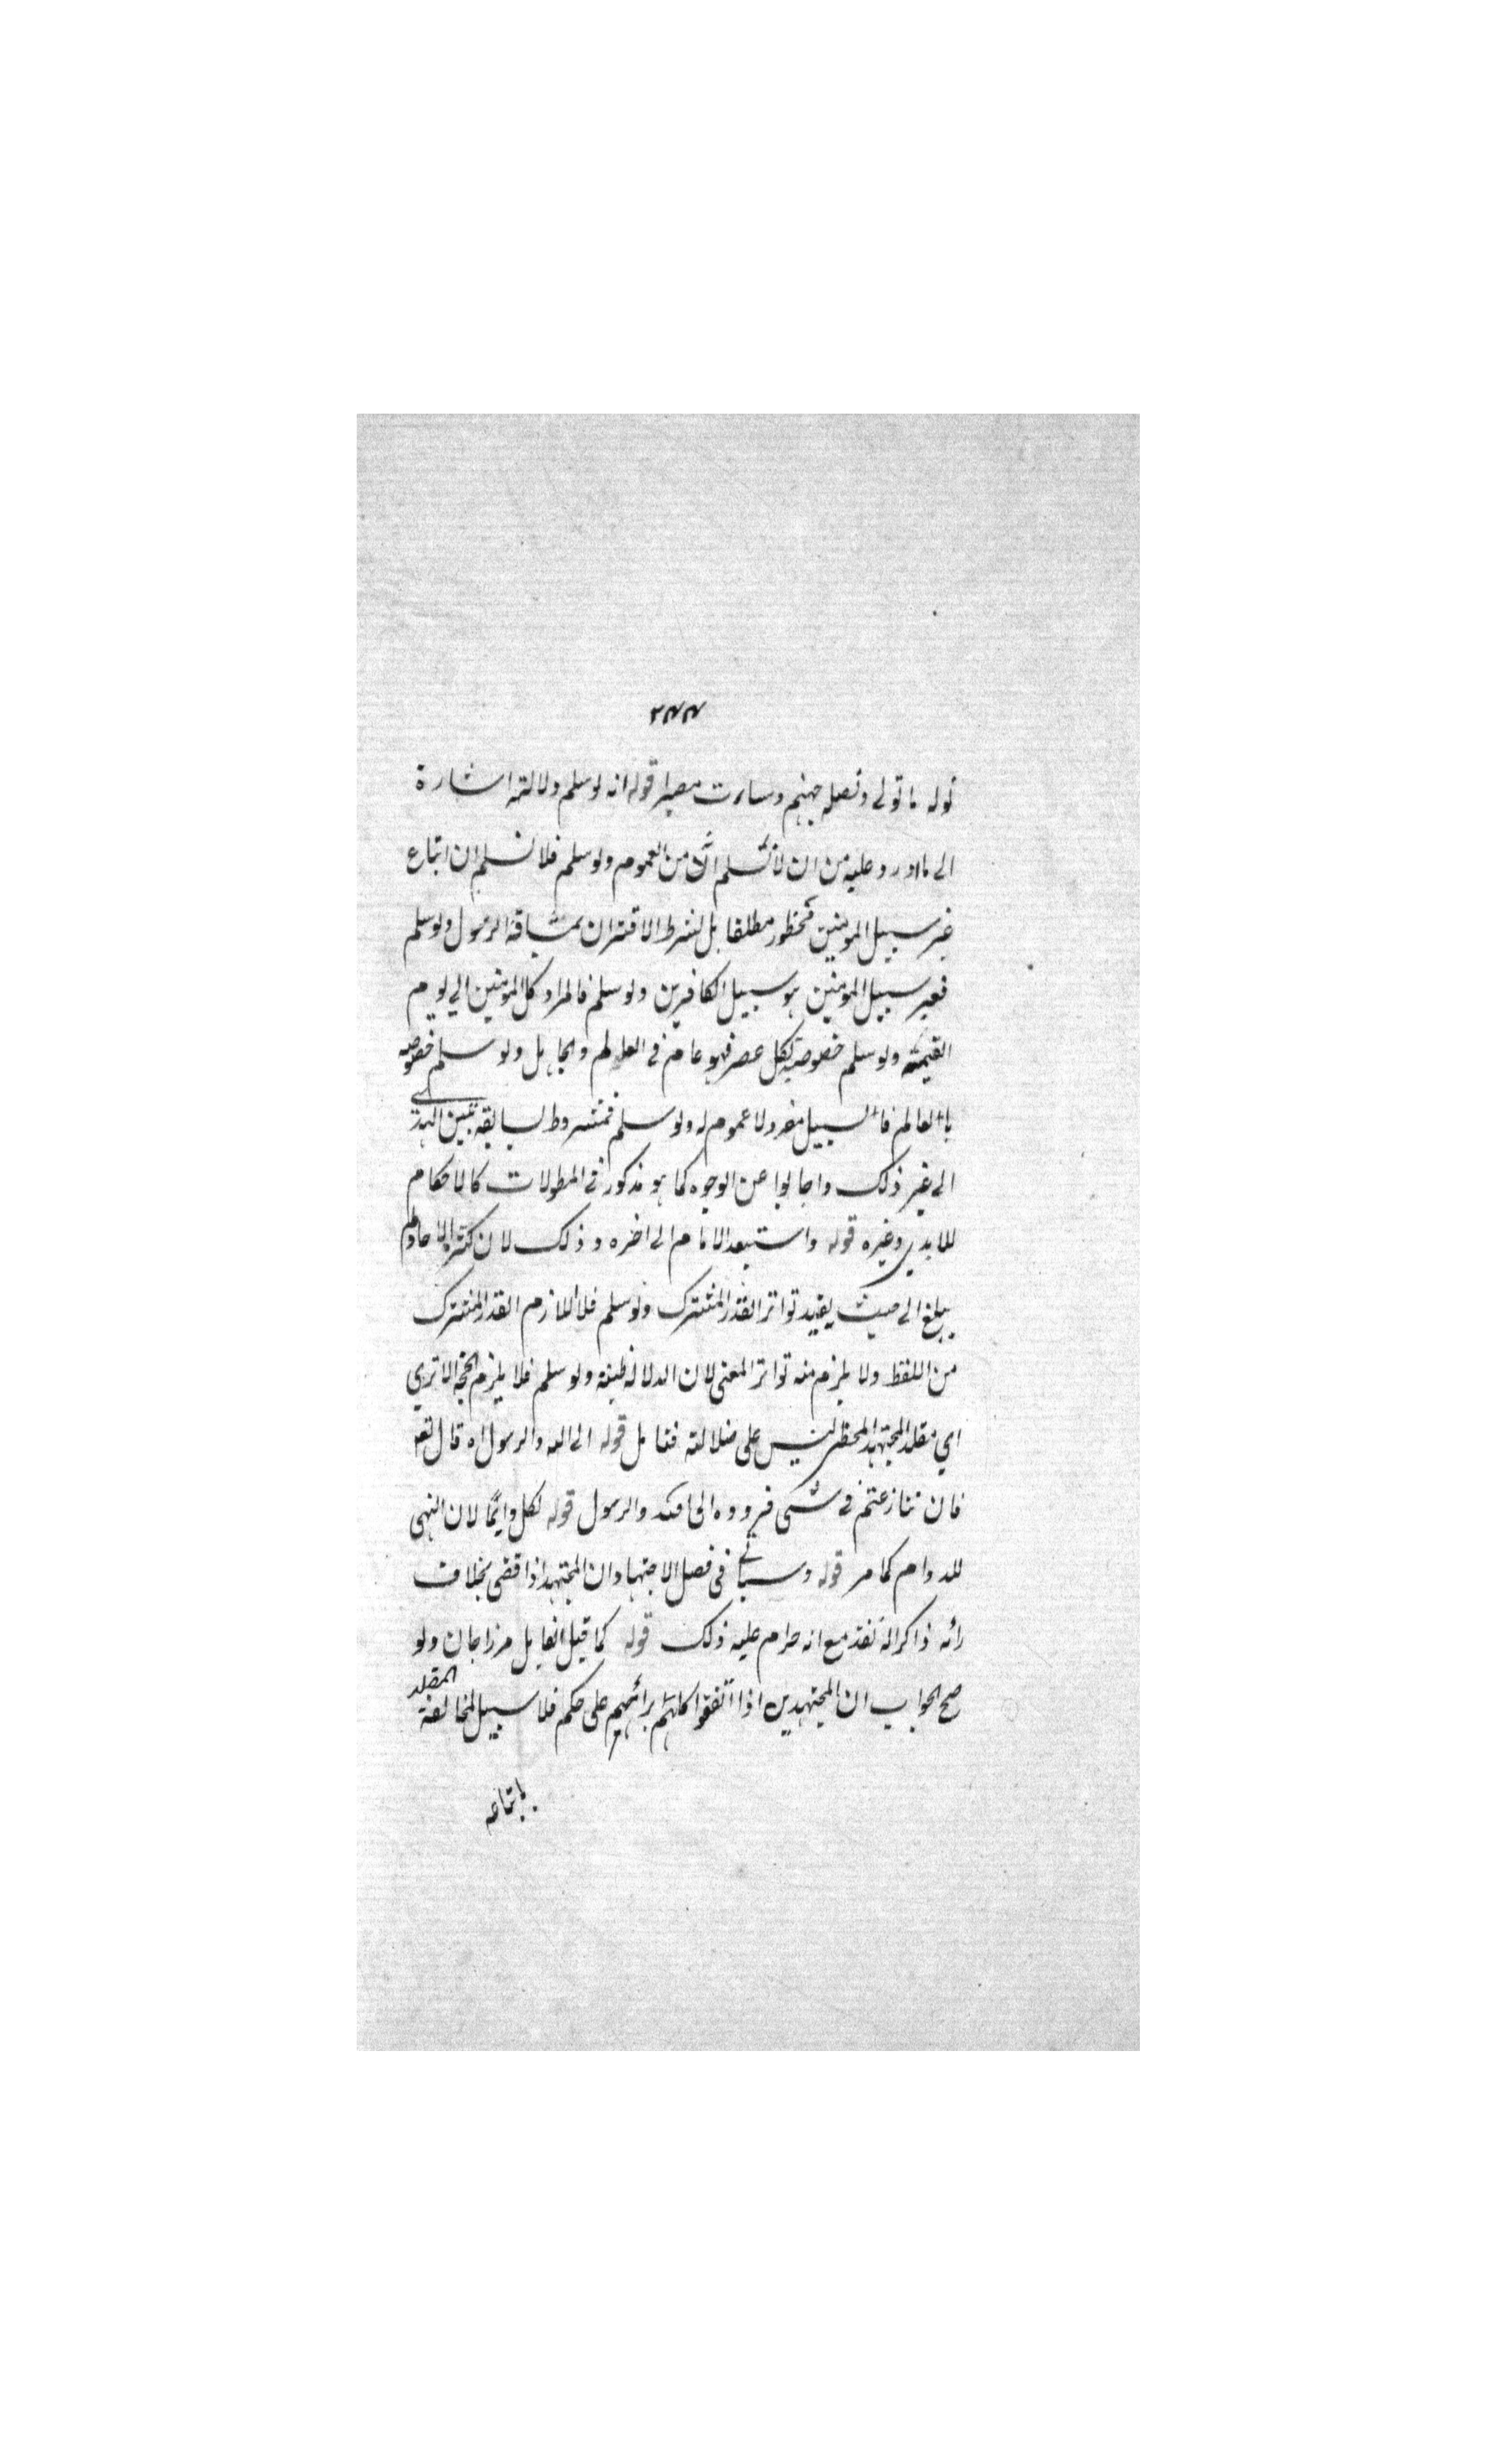 ٢٣٣
نوله ما تولى ونصله جهنم وساءت مصيرا قوله انه لو سلم دلالته اشارة
الى ما اورد عليه من ان لا نسلم ان من العموم ولو سلم فلا نسلم ان اتباع
غير سبيل المومنين محظور مطلقا بل بشرط الاقتران بمشاقة الرسول ولو سلم
فغير سبيل المومنين هو سبيل الكافرين ولو سلم فالمراد كل المومنين الى يوم
القيمة ولو سلم خصوصية لكل عصر فهو عام في العالم والجاهل ولو سلم خصوصه
بالعالم فالسبيل مفرد لا عموم له ولو سلم فمشروط بسابقة تبين الهدى
الى غير ذلك واجابوا عن الوجوه كما هو مذكور في المطولات كالاحكام
للآمدي وغيره قوله واستبعد الامام الى اخره وذلك لان كثرة الاحاد لم
يبلغ الى حيث يفيد تواتر القدر المشترك ولو سلم فلا اللازم القدر المشترك
من اللفظ ولا يلزم منه تواتر المعنى لان الدلالة ظنية ولو سلم فلا يلزم الحجة الا ترى
اي مقلد المجتهد المخطي ليس على ضلالته فتامل قوله الى الله والرسول اه قال تعه
فان تنازعتم في شي فردوه الى الله والرسول قوله لكل دايما لان النهي
للدوام كما مر قوله وسياتي في فصل الاجتهاد ان المجتهد اذا قضى بخلاف
رائه ذاكرا له نفذ مع انه حرام عليه ذلك قوله كما قيل القايل مرزاجان ولو
صح الجواب ان المجتهدين اذا اتفقوا كلهم برائهم على حكم فلا سبيل لمخالفة
المقلد
باتباعه